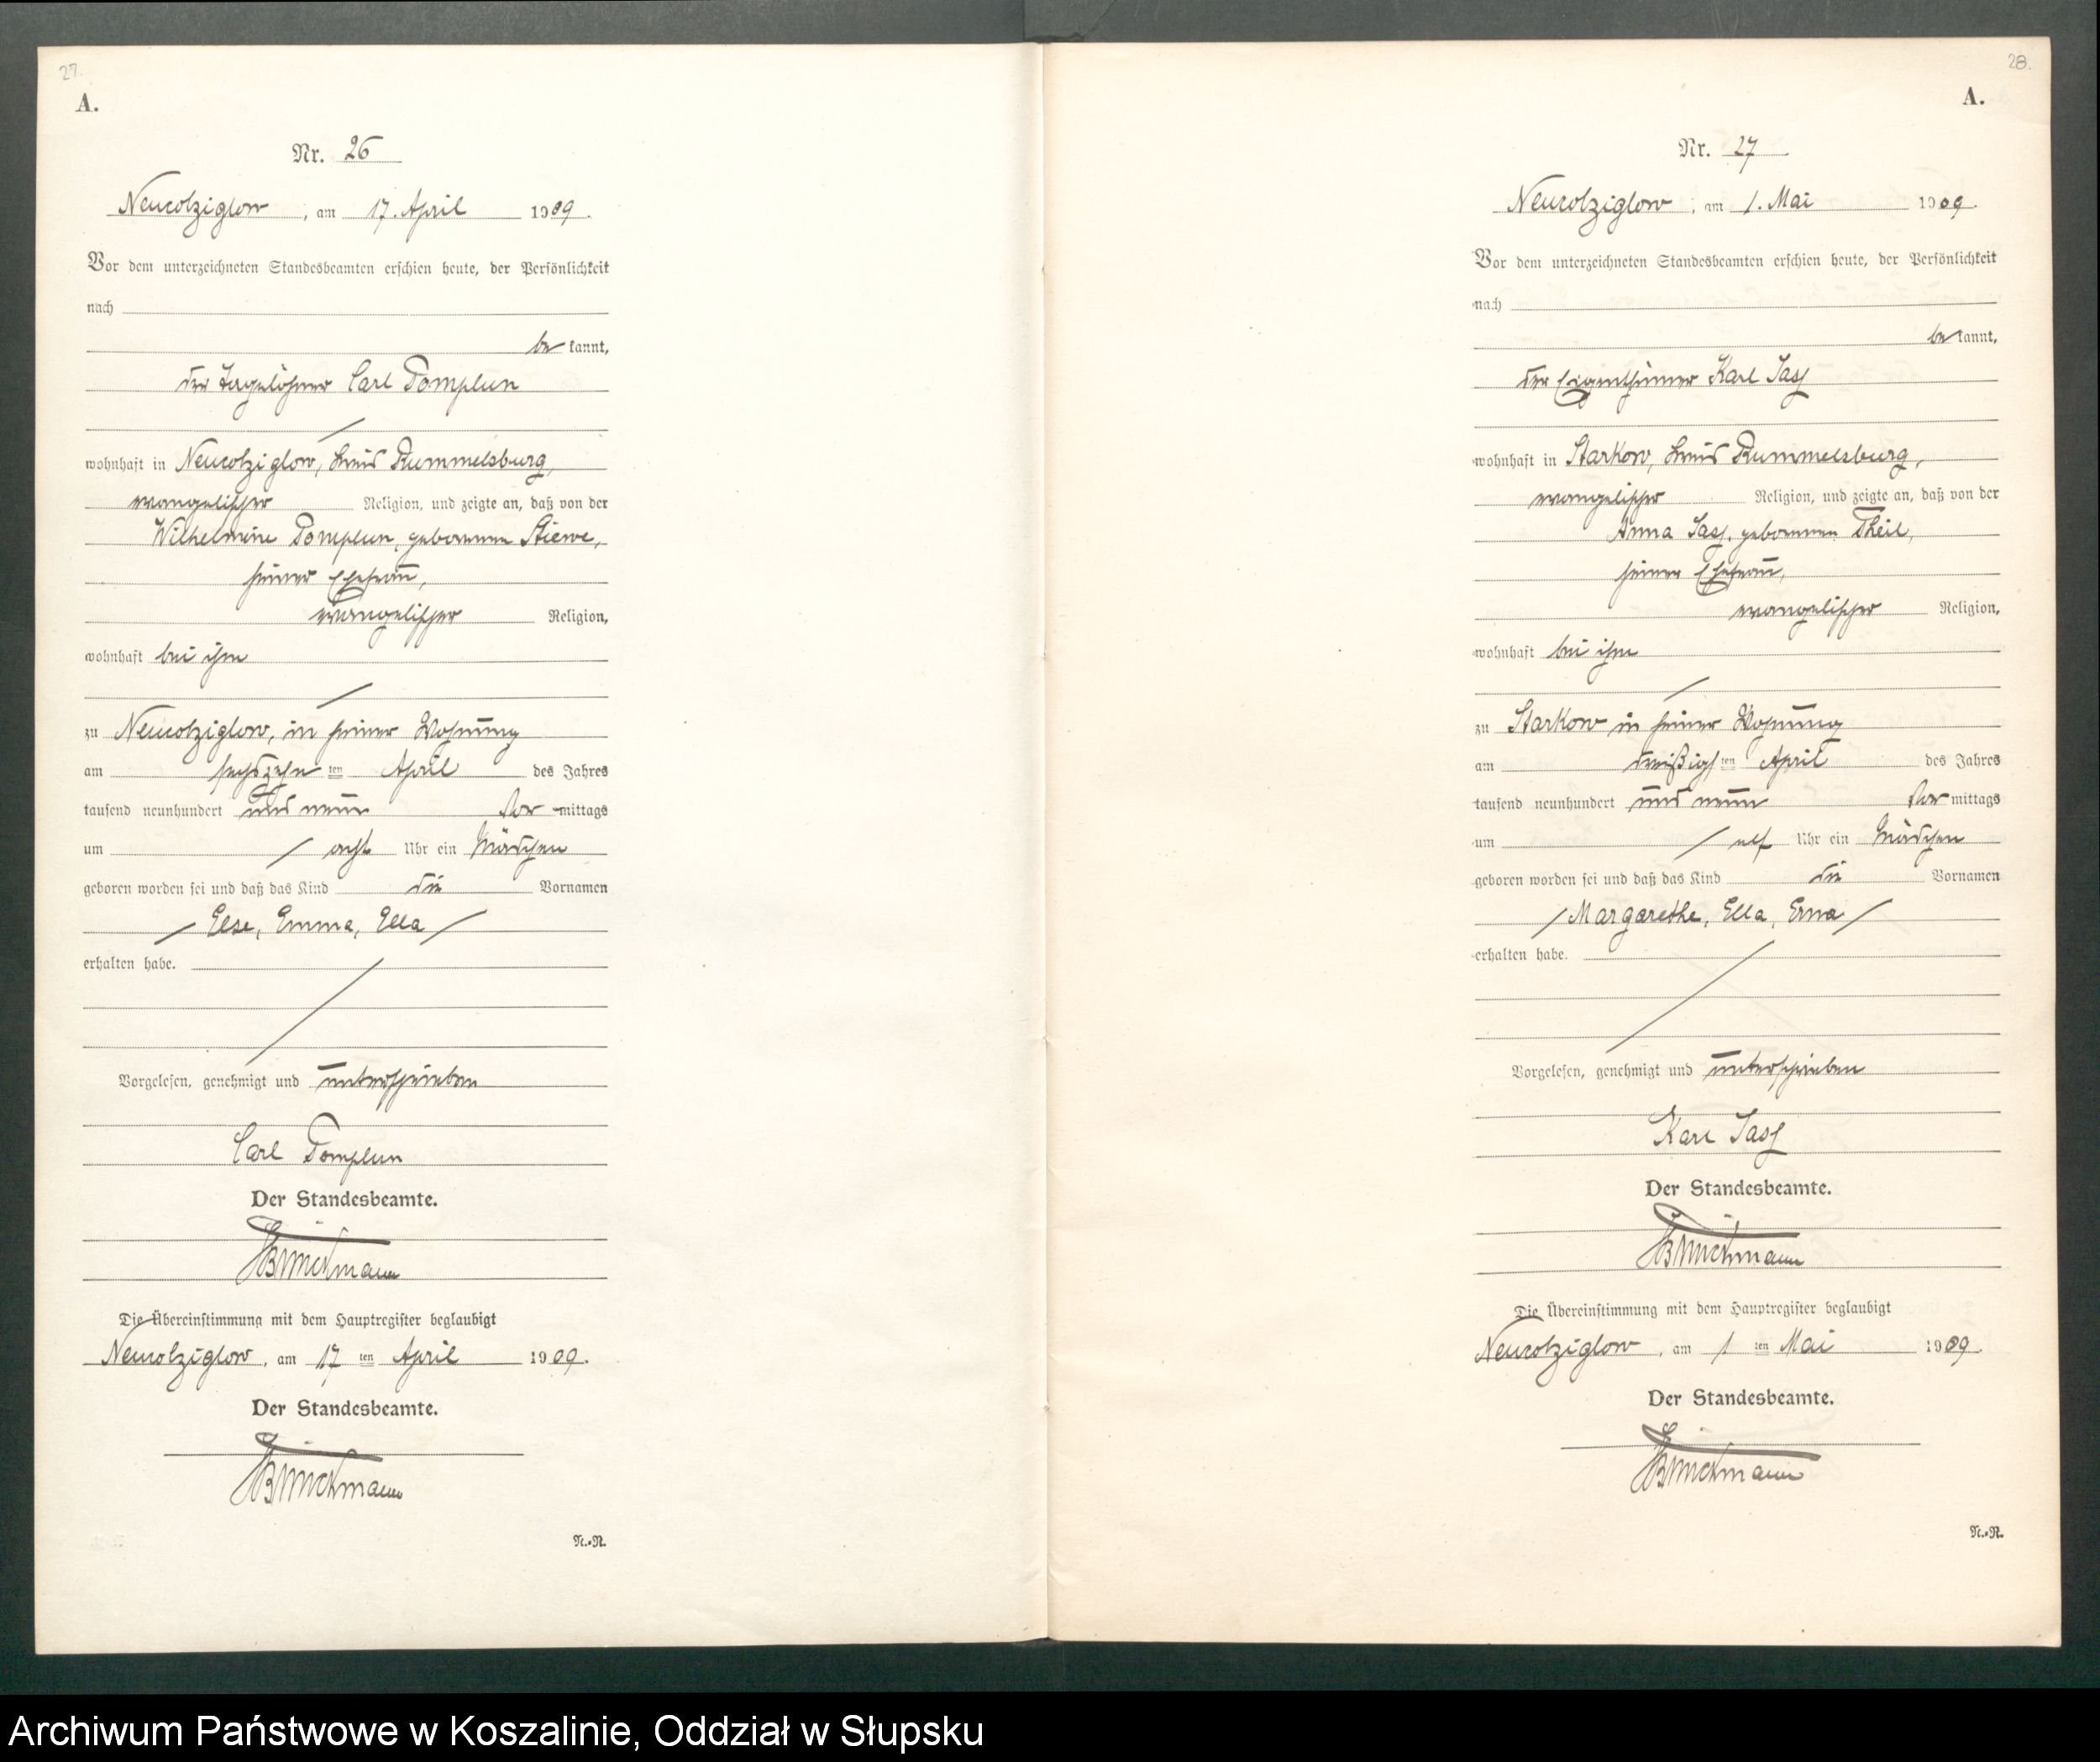 27.
A.
Nr. 26
Neucolziglow, am 17. April 1909.
Vor dem unterzeichneten Standesbeamten erschien heute, der Persönlichkeit
nach
be kannt,
der Tagelöhner Carl Pomplun
wohnhaft in Neucolziglow, Kreis Rummelsburg,
evangelischer Religion, und zeigte an, daß von der
Wilhelmine Pomplun, geborenen Stiewe,
seiner Ehefrau,
evangelischer Religion,
wohnhaft bei ihm
zu Neucolziglow, in seiner Wohnung
am sechszehn ten April des Jahres
tausend neunhundert und neun Vor mittags
um acht Uhr ein Mädchen
geboren worden sei und daß das Kind die Vornamen
Else, Emma, Ella
erhalten habe.
Vorgelesen, genehmigt und unterschrieben
Carl Pomplun
Der Standesbeamte.
Die Übereinstimmung mit dem Hauptregister beglaubigt
Neucolziglow, am 17 ten April 1909.
Der Standesbeamte.
N.-N.
28.
A.
Nr. 27
Neucolziglow, am 1. Mai 1909.
Vor dem unterzeichneten Standesbeamten erschien heute, der Persönlichkeit
nach
be kannt,
der Eigenthümer Karl Sass
wohnhaft in Starkow, Kreis Rummelsburg,
evangelischer Religion, und zeigte an, daß von der
Anna Sass, geborenen Theil,
seiner Ehefrau,
evangelischer Religion,
wohnhaft bei ihm
zu Starkow in seiner Wohnung
am dreißigs ten April des Jahres
tausend neunhundert und neun Vor mittags
um elf Uhr ein Mädchen
geboren worden sei und daß das Kind die Vornamen
Margarethe, Ella, Erna
erhalten habe.
Vorgelesen, genehmigt und unterschrieben
Karl Sass
Der Standesbeamte.
Die Übereinstimmung mit dem Hauptregister beglaubigt
Neucolziglow, am 1 ten Mai 1909.
Der Standesbeamte.
N.-N.
Archiwum Państwowe w Koszalinie, Oddział w Słupsku